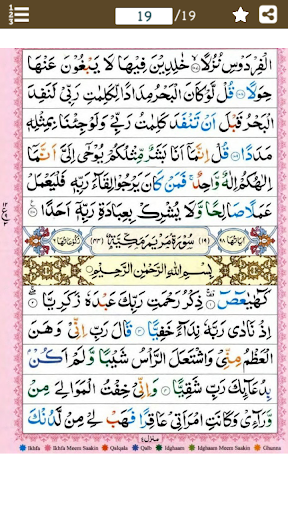 19 /19
الْفِرْدَوْسِ نُزُلًا ۙ خٰلِدِيْنَ فِيْهَا لَا يَبْغُوْنَ عَنْهَا
حِوَلًا قُلْ لَّوْ كَانَ الْبَحْرُ مِدَادًا لِّكَلِمٰتِ رَبِّيْ لَنَفِدَ
الْبَحْرُ قَبْلَ اَنْ تَنْفَدَ كَلِمٰتُ رَبِّيْ وَلَوْ جِئْنَا بِمِثْلِهٖ
مَدَدًا قُلْ اِنَّمَآ اَنَا بَشَرٌ مِّثْلُكُمْ يُوْحٰٓى اِلَيَّ اَنَّمَآ
اِلٰهُكُمْ اِلٰهٌ وَّاحِدٌ ۚ فَمَنْ كَانَ يَرْجُوْا لِقَآءَ رَبِّهٖ فَلْيَعْمَلْ
عَمَلًا صَالِحًا وَّلَا يُشْرِكْ بِعِبَادَةِ رَبِّهٖٓ اَحَدًا
اٰيَاتُهَا ٩٨ (١٩) سُوْرَةُ مَرْيَمَ مَكِّيَّةٌ (٤٤) رُكُوْعَاتُهَا ٦
بِسْمِ اللّٰهِ الرَّحْمٰنِ الرَّحِيْمِ
كٓهٰيٰعٓصٓ ذِكْرُ رَحْمَتِ رَبِّكَ عَبْدَهٗ زَكَرِيَّا
اِذْ نَادٰى رَبَّهٗ نِدَآءً خَفِيًّا قَالَ رَبِّ اِنِّيْ وَهَنَ
الْعَظْمُ مِنِّيْ وَاشْتَعَلَ الرَّاْسُ شَيْبًا وَّلَمْ اَكُنْۢ
بِدُعَآئِكَ رَبِّ شَقِيًّا وَاِنِّيْ خِفْتُ الْمَوَالِيَ مِنْ
وَّرَآءِيْ وَكَانَتِ امْرَاَتِيْ عَاقِرًا فَهَبْ لِيْ مِنْ لَّدُنْكَ
منزل ٤
Ikhfa Ikhfa Meem Saakin Qalqala Qalb Idghaam Idghaam Meem Saakin Ghunna